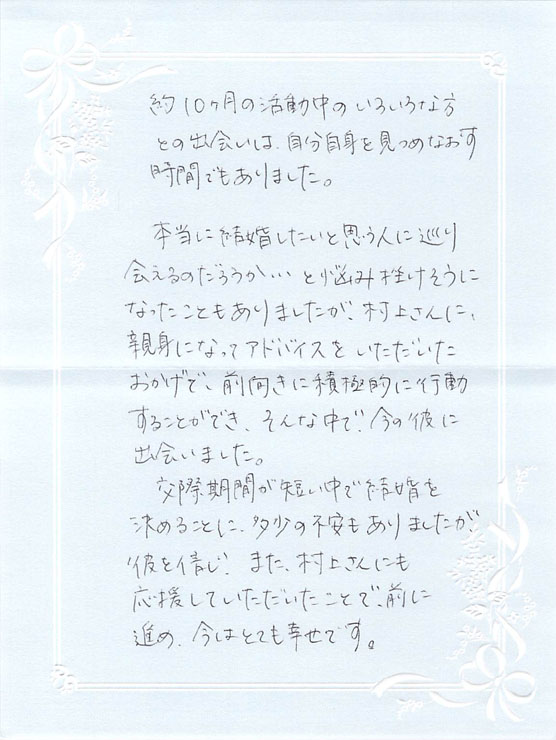 約10ヶ月の活動中のいろいろな方
との出会いは、自分自身を見つめなおす
時間でもありました。
本当に結婚したいと思う人に巡り
会えるのだろうか…と悩み挫けそうに
なったこともありましたが、村上さんに、
親身になってアドバイスをいただいた
おかげで、前向きに積極的に行動
することができ、そんな中で、今の彼に
出会いました。
交際期間が短い中で結婚を
決めることに、多少の不安もありましたが、
彼を信じ、また、村上さんにも
応援していただいたことで、前に
進め、今はとても幸せです。